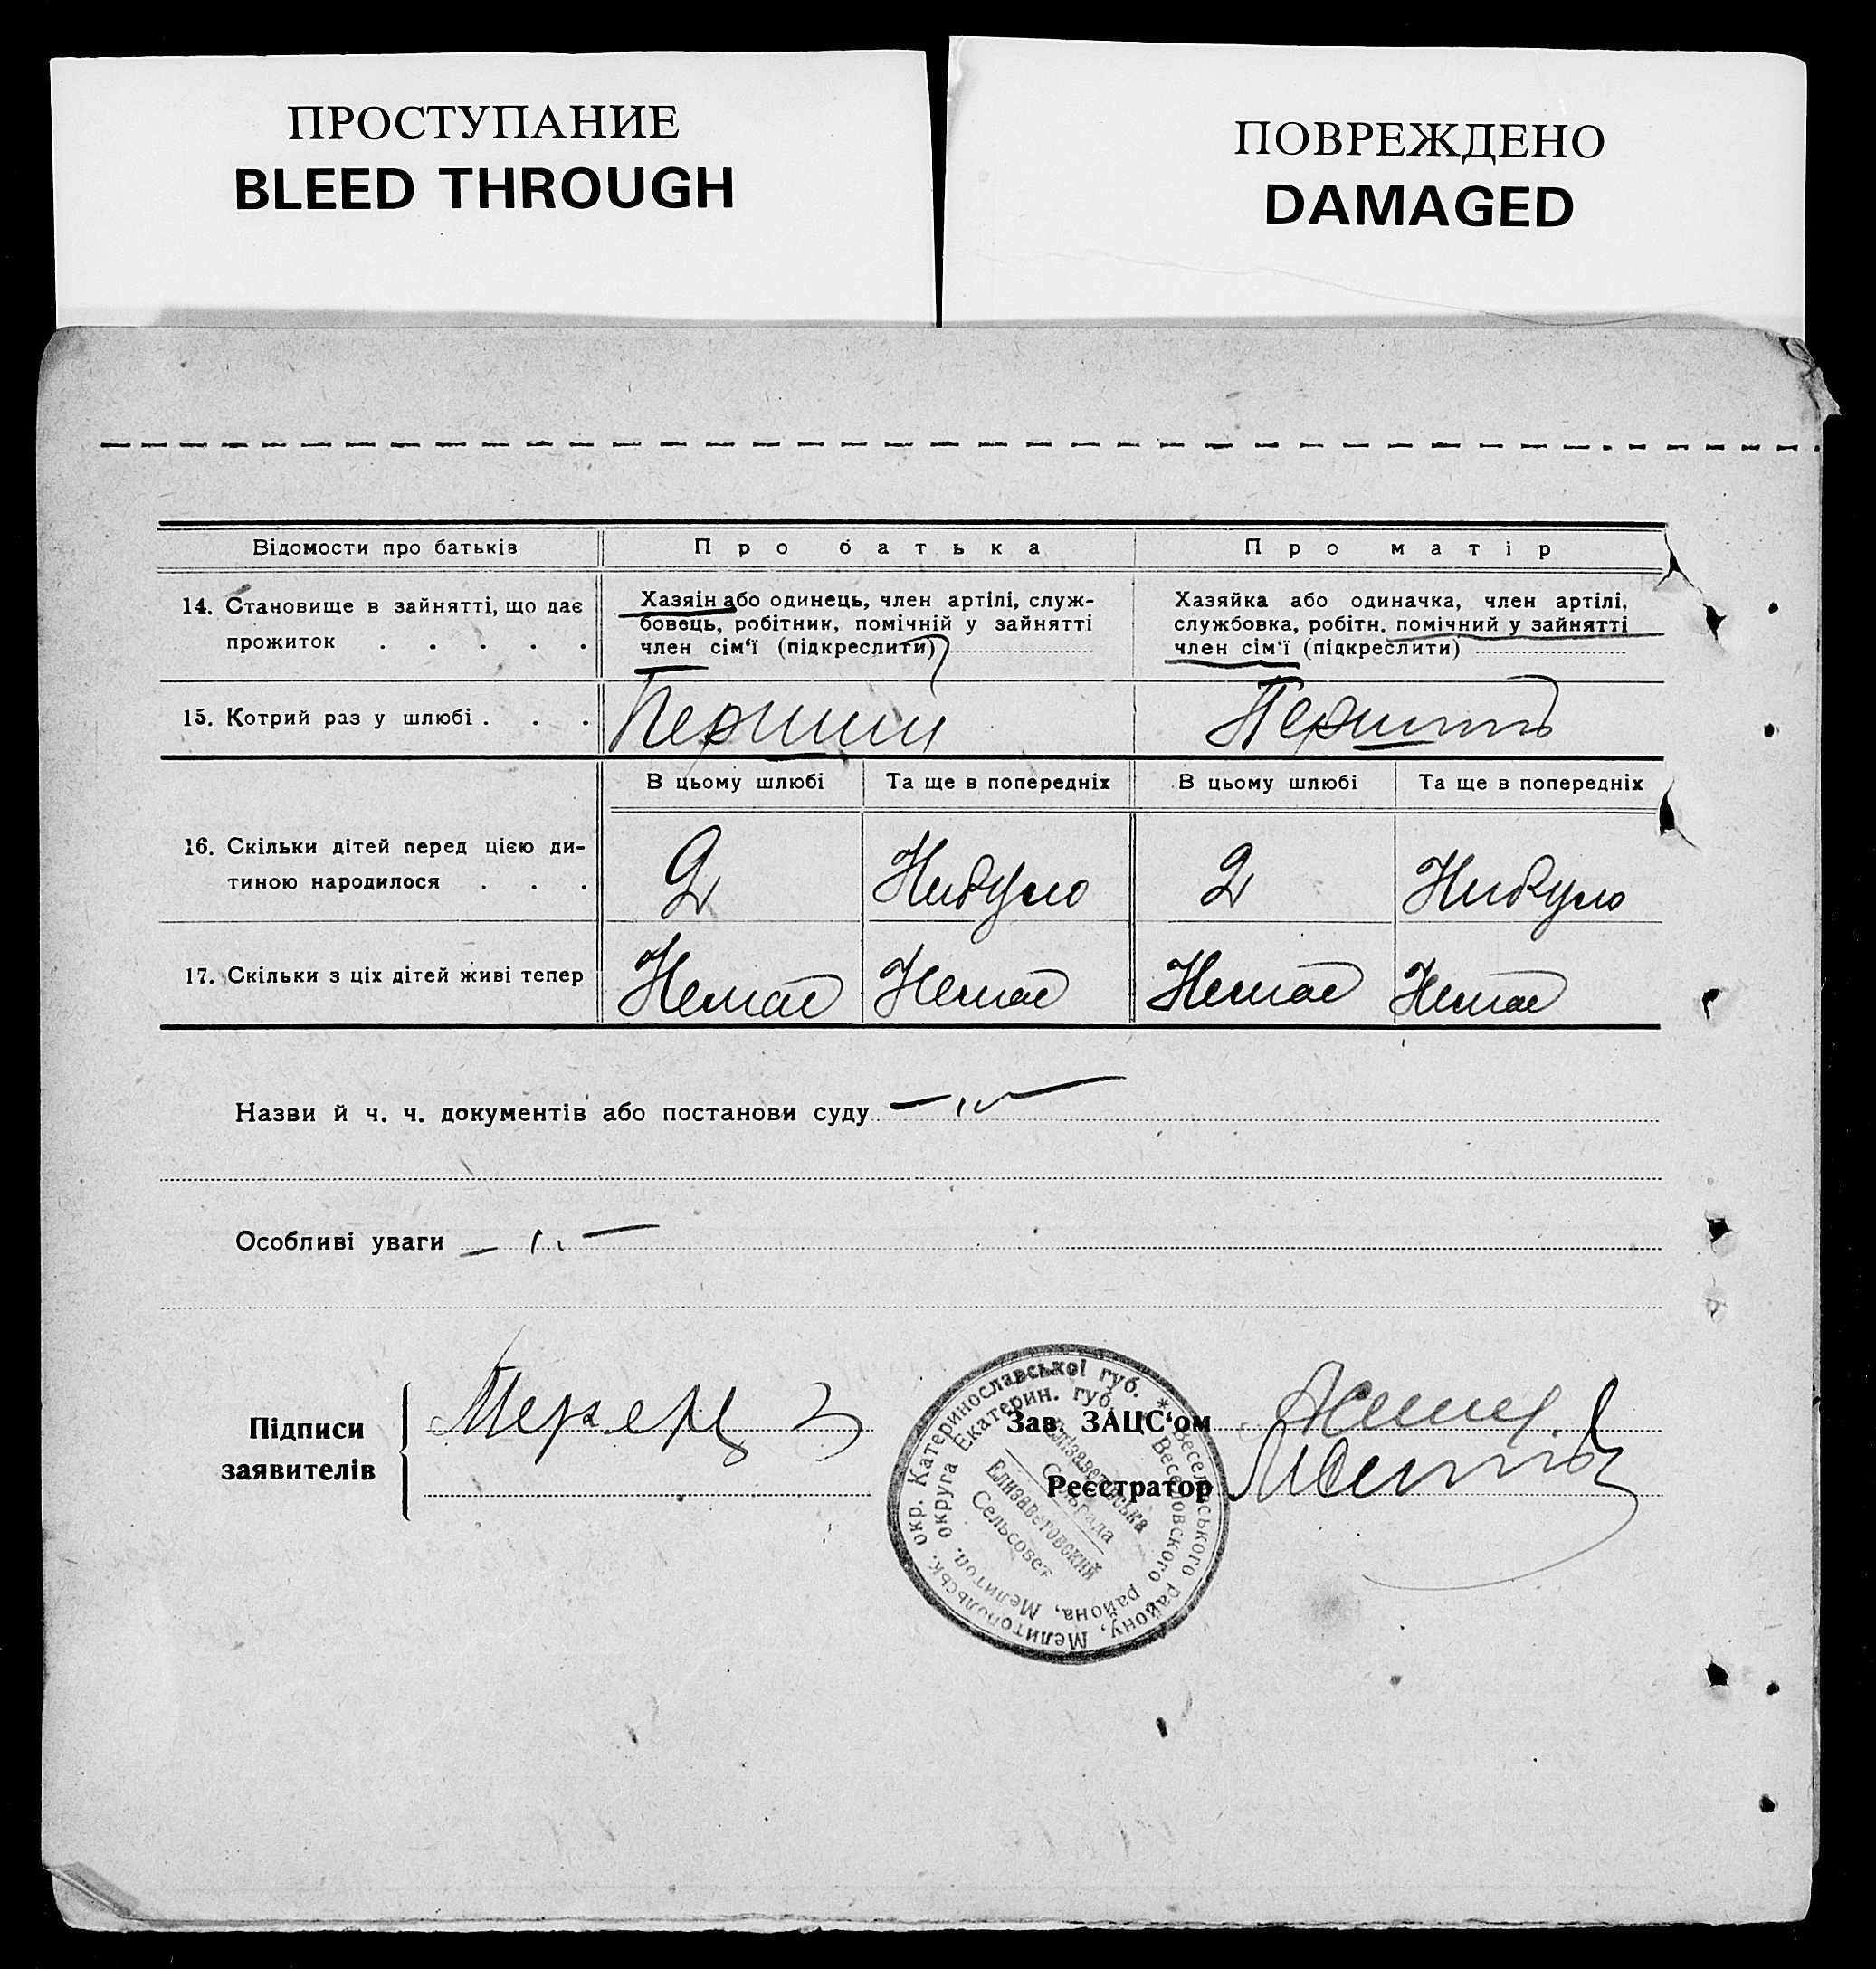 ПРОСТУПАНИЕ
BLEED THROUGH
ПОВРЕЖДЕНО
DAMAGED
Відомости про батьків
Про батька
Про матір
14. Становище в зайнятті, що дає
прожиток . . . . .
Хазяін або одинець, член артілі, служ-
бовець, робітник, помічній у зайнятті
член сім‘ї (підкреслити)
Хазяйка або одиначка, член артілі,
службовка, робітн. помічний у зайнятті
член сім‘ї (підкреслити)
15. Котрий раз у шлюбі . . .
Перший
В цьому шлюбі
Та ще в попередніх
В цьому шлюбі
Та ще в попередніх
16. Скільки дітей перед цією ди-
тиною народилося . . .
2
Нибуло
2
Нибуло
17. Скільки з ціх дітей живі тепер
Немає
Немає
Немає
Немає
Назви й ч. ч. документів або постанови суду
Особливі уваги
Підписи
заявителів
Зав. ЗАЦС‘ом
Реєстратор
Веселівського району, Мелитопольськ. окр. Катеринославської губ. *
Веселовского района, Мелитоп. округа Екатерин. губ.
Єлізаветівська
Сільрада
Елизаветовский
Сельсовет